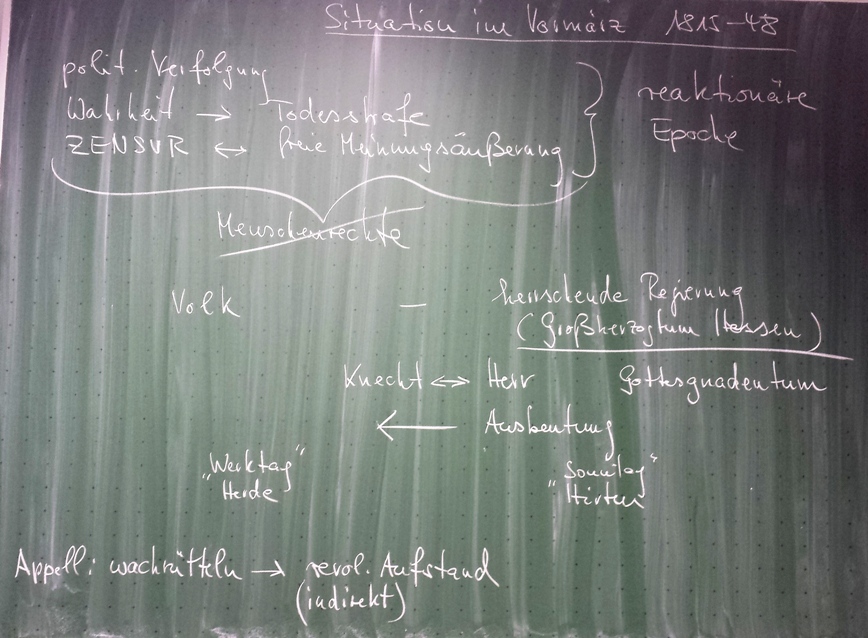 Situation im Vormärz 1815-48
polit. Verfolgung
Wahrheit → Todesstrafe
ZENSUR ↔ freie Meinungsäußerung
reaktionäre
Epoche
Menschenrechte
Volk – herrschende Regierung
(Großherzogtum Hessen)
Knecht ↔ Herr Gottesgnadentum
← Ausbeutung
"Werktag" "Sonntag"
Herde Hirten
Appell: wachrütteln → revol. Aufstand
(indirekt)